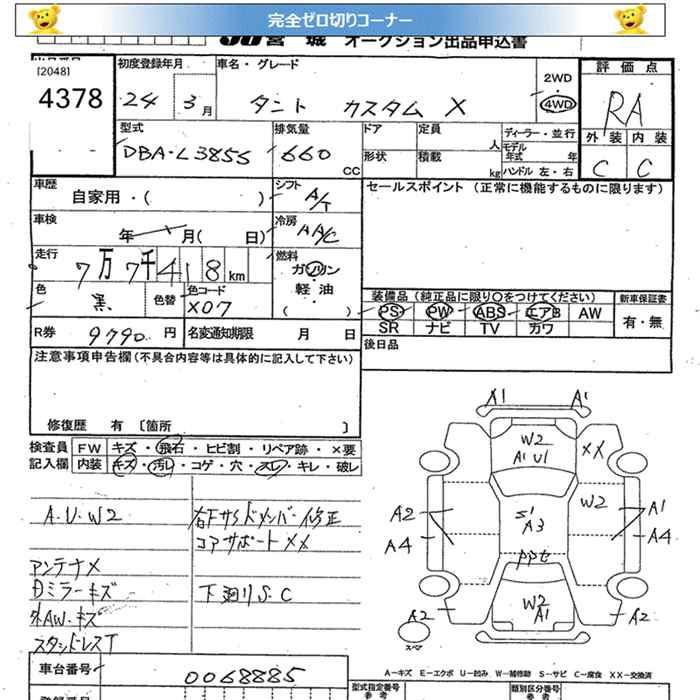 完全ゼロ切りコーナー
JU宮城 オークション出品申込書
[2048]
4378
初度登録年月
24 3月
車名・グレード
タント カスタム X
2WD
4WD
評価点
RA
外装 内装
C C
型式
DBA-L385S
排気量
660 CC
ドア 定員 人
形状 積載 kg
ディーラー・並行
モデル年式 年
ハンドル 左・右
車歴
自家用・( )
シフト
A/T
セールスポイント (正常に機能するものに限ります)
車検
年 月( 日)
冷房
AA/C
走行
7万7千418km
燃料
ガソリン
軽・油
( )
色
黒
色替
色コード
X07
装備品 (純正品に限り○をつけてください)
PS PW ABS エアB AW
SR ナビ TV カワ
新車保証書
有・無
R券 9790円
名変通知期限 月 日
後日品
注意事項申告欄 (不具合内容等は具体的に記入して下さい)
修復歴 有 [箇所 ]
検査員記入欄
FW キズ・飛石・ヒビ割・リペア跡・×要
内装 キズ・汚レ・コゲ・穴・スレ・キレ・破レ
A.U.W2
アンテナ×
Dミラーキズ
外AW.キズ
スタッドレスT
右Fサイドメンバー修正
コアサポートXX
下廻りS.C
A1 A1
W2
A1 U1
XX
W2
S1
A3
A2
A4
A1
A4
PPt
W2
A1
A2
A2
スペア
A-キズ E-エクボ U-凹み W-補修跡 S-サビ C-腐食 XX-交換済
車台番号
0068885
登録番号
型式指定番号
参考
類別区分番号
参考